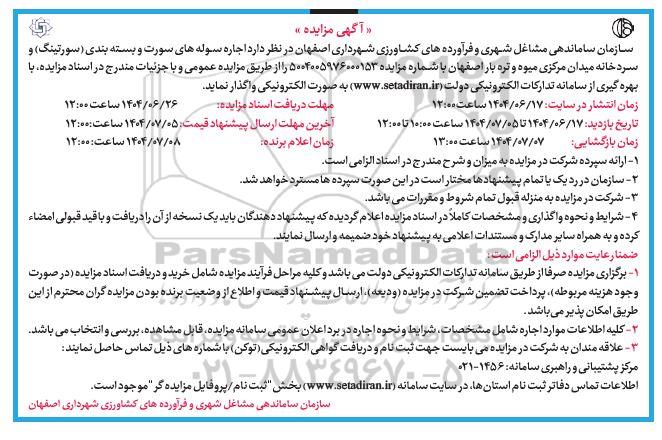 « آگهی مزایده »
سازمان ساماندهی مشاغل شهری و فرآورده های کشاورزی شهرداری اصفهان در نظر دارد اجاره سوله های سورت و بسته بندی (سورتینگ) و
سردخانه میدان مرکزی میوه و تره بار اصفهان با شماره مزایده ۵۰۰۴۰۰۵۹۷۶۰۰۰۱۵۳ را از طریق مزایده عمومی و با جزئیات مندرج در اسناد مزایده، با
بهره گیری از سامانه تدارکات الکترونیکی دولت (www.setadiran.ir) به صورت الکترونیکی واگذار نماید.
زمان انتشار در سایت: ۱۴۰۴/۰۶/۱۷ ساعت ۱۲:۰۰ مهلت دریافت اسناد مزایده: ۱۴۰۴/۰۶/۲۶ ساعت ۱۲:۰۰
تاریخ بازدید: ۱۴۰۴/۰۶/۱۷ تا ۱۴۰۴/۰۷/۰۵ ساعت ۱۰:۰۰ تا ۱۲:۰۰ آخرین مهلت ارسال پیشنهاد قیمت: ۱۴۰۴/۰۷/۰۵ ساعت ۱۲:۰۰
زمان بازگشایی: ۱۴۰۴/۰۷/۰۷ ساعت ۱۳:۰۰ زمان اعلام برنده: ۱۴۰۴/۰۷/۰۸ ساعت ۱۲:۰۰
۱- ارائه سپرده شرکت در مزایده به میزان و شرح مندرج در اسناد الزامی است.
۲- سازمان در رد یک یا تمام پیشنهادها مختار است در این صورت سپرده ها مسترد خواهد شد.
۳- شرکت در مزایده به منزله قبول تمام شروط و مقررات می باشد.
۴- شرایط و نحوه واگذاری و مشخصات کاملاً در اسناد مزایده اعلام گردیده که پیشنهاد دهندگان باید یک نسخه از آن را دریافت و با قید قبولی امضاء
کرده و به همراه سایر مدارک و مستندات اعلامی به پیشنهاد خود ضمیمه و ارسال نمایند.
ضمنا رعایت موارد ذیل الزامی است:
۱- برگزاری مزایده صرفا از طریق سامانه تدارکات الکترونیکی دولت می باشد و کلیه مراحل فرآیند مزایده شامل خرید و دریافت اسناد مزایده (در صورت
وجود هزینه مربوطه)، پرداخت تضمین شرکت در مزایده (ودیعه)، ارسال پیشنهاد قیمت و اطلاع از وضعیت برنده بودن مزایده گران محترم از این
طریق امکان پذیر می باشد.
۲- کلیه اطلاعات موارد اجاره شامل مشخصات، شرایط و نحوه اجاره در برد اعلان عمومی سامانه مزایده، قابل مشاهده، بررسی و انتخاب می باشد.
۳- علاقه مندان به شرکت در مزایده می بایست جهت ثبت نام و دریافت گواهی الکترونیکی (توکن) با شماره های ذیل تماس حاصل نمایند:
مرکز پشتیبانی و راهبری سامانه: ۱۴۵۶-۰۲۱
اطلاعات تماس دفاتر ثبت نام استان ها، در سایت سامانه (www.setadiran.ir) بخش "ثبت نام / پروفایل مزایده گر" موجود است.
سازمان ساماندهی مشاغل شهری و فرآورده های کشاورزی شهرداری اصفهان
ParsNamadData
۰۲۱-۸۸۳۴۹۶۷۰-۵